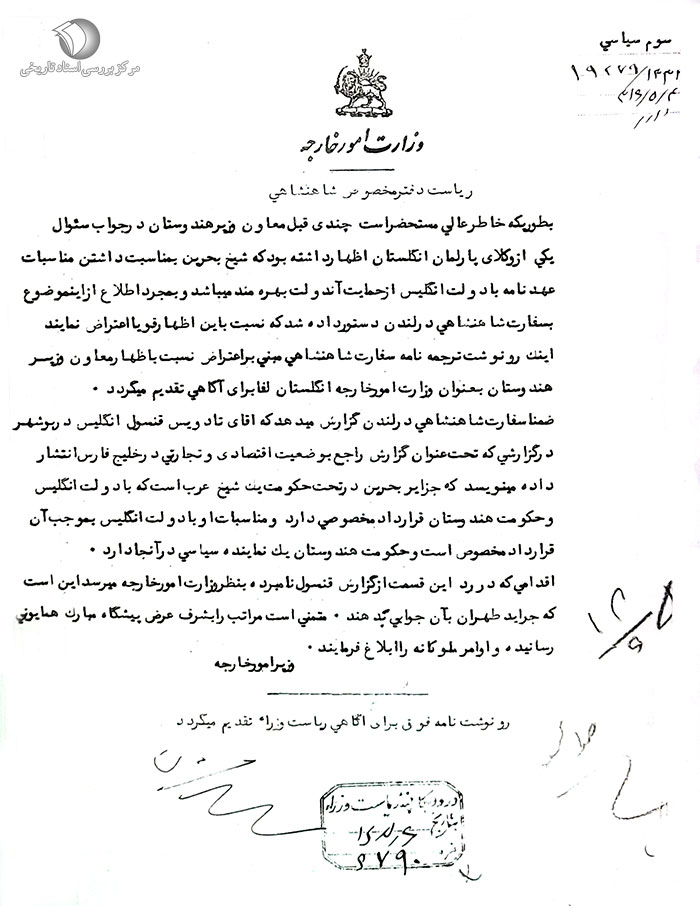 مرکز بررسی اسناد تاریخی
سوم سیاسي
۱۹۲۷۹/۱۴۳۲
۳۱۶/۵/۴
وزارت امور خارجه
ریاست دفتر مخصوص شاهنشاهي
بطوریکه خاطر عالي مستحضر است چندی قبل معاون وزیر هندوستان در جواب سئوال
یکي از وکلای پارلمان انگلستان اظهار داشته بود که شیخ بحرین بمناسبت داشتن مناسبات
عهدنامه با دولت انگلیس از حمایت آندولت بهره مند میباشد و بمجرد اطلاع از اینموضوع
بسفارت شاهنشاهي در لندن دستور داده شد که نسبت باین اظهار قویا اعتراض نمایند
اینك رونوشت ترجمه نامه سفارت شاهنشاهي مبني بر اعتراض نسبت باظهار معاون وزیر
هندوستان بعنوان وزارت امور خارجه انگلستان لفا برای آگاهي تقدیم میگردد ۰
ضمنا سفارت شاهنشاهي در لندن گزارش میدهد که اقای تادویس قنسول انگلیس در بوشهر
در گزارشي که تحت عنوان گزارش راجع بوضعیت اقتصادی و تجارتي در خلیج فارس انتشار
داده مینویسد که جزایر بحرین در تحت حکومت یك شیخ عرب است که با دولت انگلیس
و حکومت هندوستان قرارداد مخصوصي دارد و مناسبات او با دولت انگلیس بموجب آن
قرارداد مخصوص است و حکومت هندوستان یك نماینده سیاسي در آنجا دارد ۰
اقدامي که در رد این قسمت از گزارش قنسول نامبرده بنظر وزارت امور خارجه میرسد این است
که جراید طهران بآن جوابي بدهند ۰ متمني است مراتب را بشرف عرض پیشگاه مبارك همایوني
رسانیده و اوامر ملوکانه را ابلاغ فرمایند ۰
وزیر امور خارجه
۱۲/۵
رونوشت نامه فوق برای آگاهي ریاست وزراء تقدیم میگردد
ورود کابینه ریاست وزراء
بتاریخ
نمره ۵۷۹۰